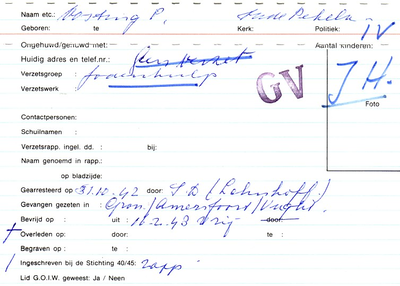 Naam etc.: Oosting P. Oude Pekela
Geboren: te Kerk: Politiek: IV
Ongehuwd/gehuwd met: Aantal kinderen:
Huidig adres en telef.nr.:
Verzetsgroep : Joodenhulp GV J.H.
Verzetswerk : Foto
Contactpersonen:
Schuilnaam :
Verzetsrapp. ingel. dd. : bij:
Naam genoemd in rapp.:
op bladzijde:
Gearresteerd op 31.10.42 door: S.D. (Lehnhoff)
Gevangen gezeten in: Gron./Amersfoort/Vught.
Bevrijd op : uit : 10-2.43 Vrij door:
† Overleden op: door: te :
Begraven op : te :
/ Ingeschreven bij de Stichting 40/45: rapp
Lid G.O.I.W. geweest: Ja / Neen